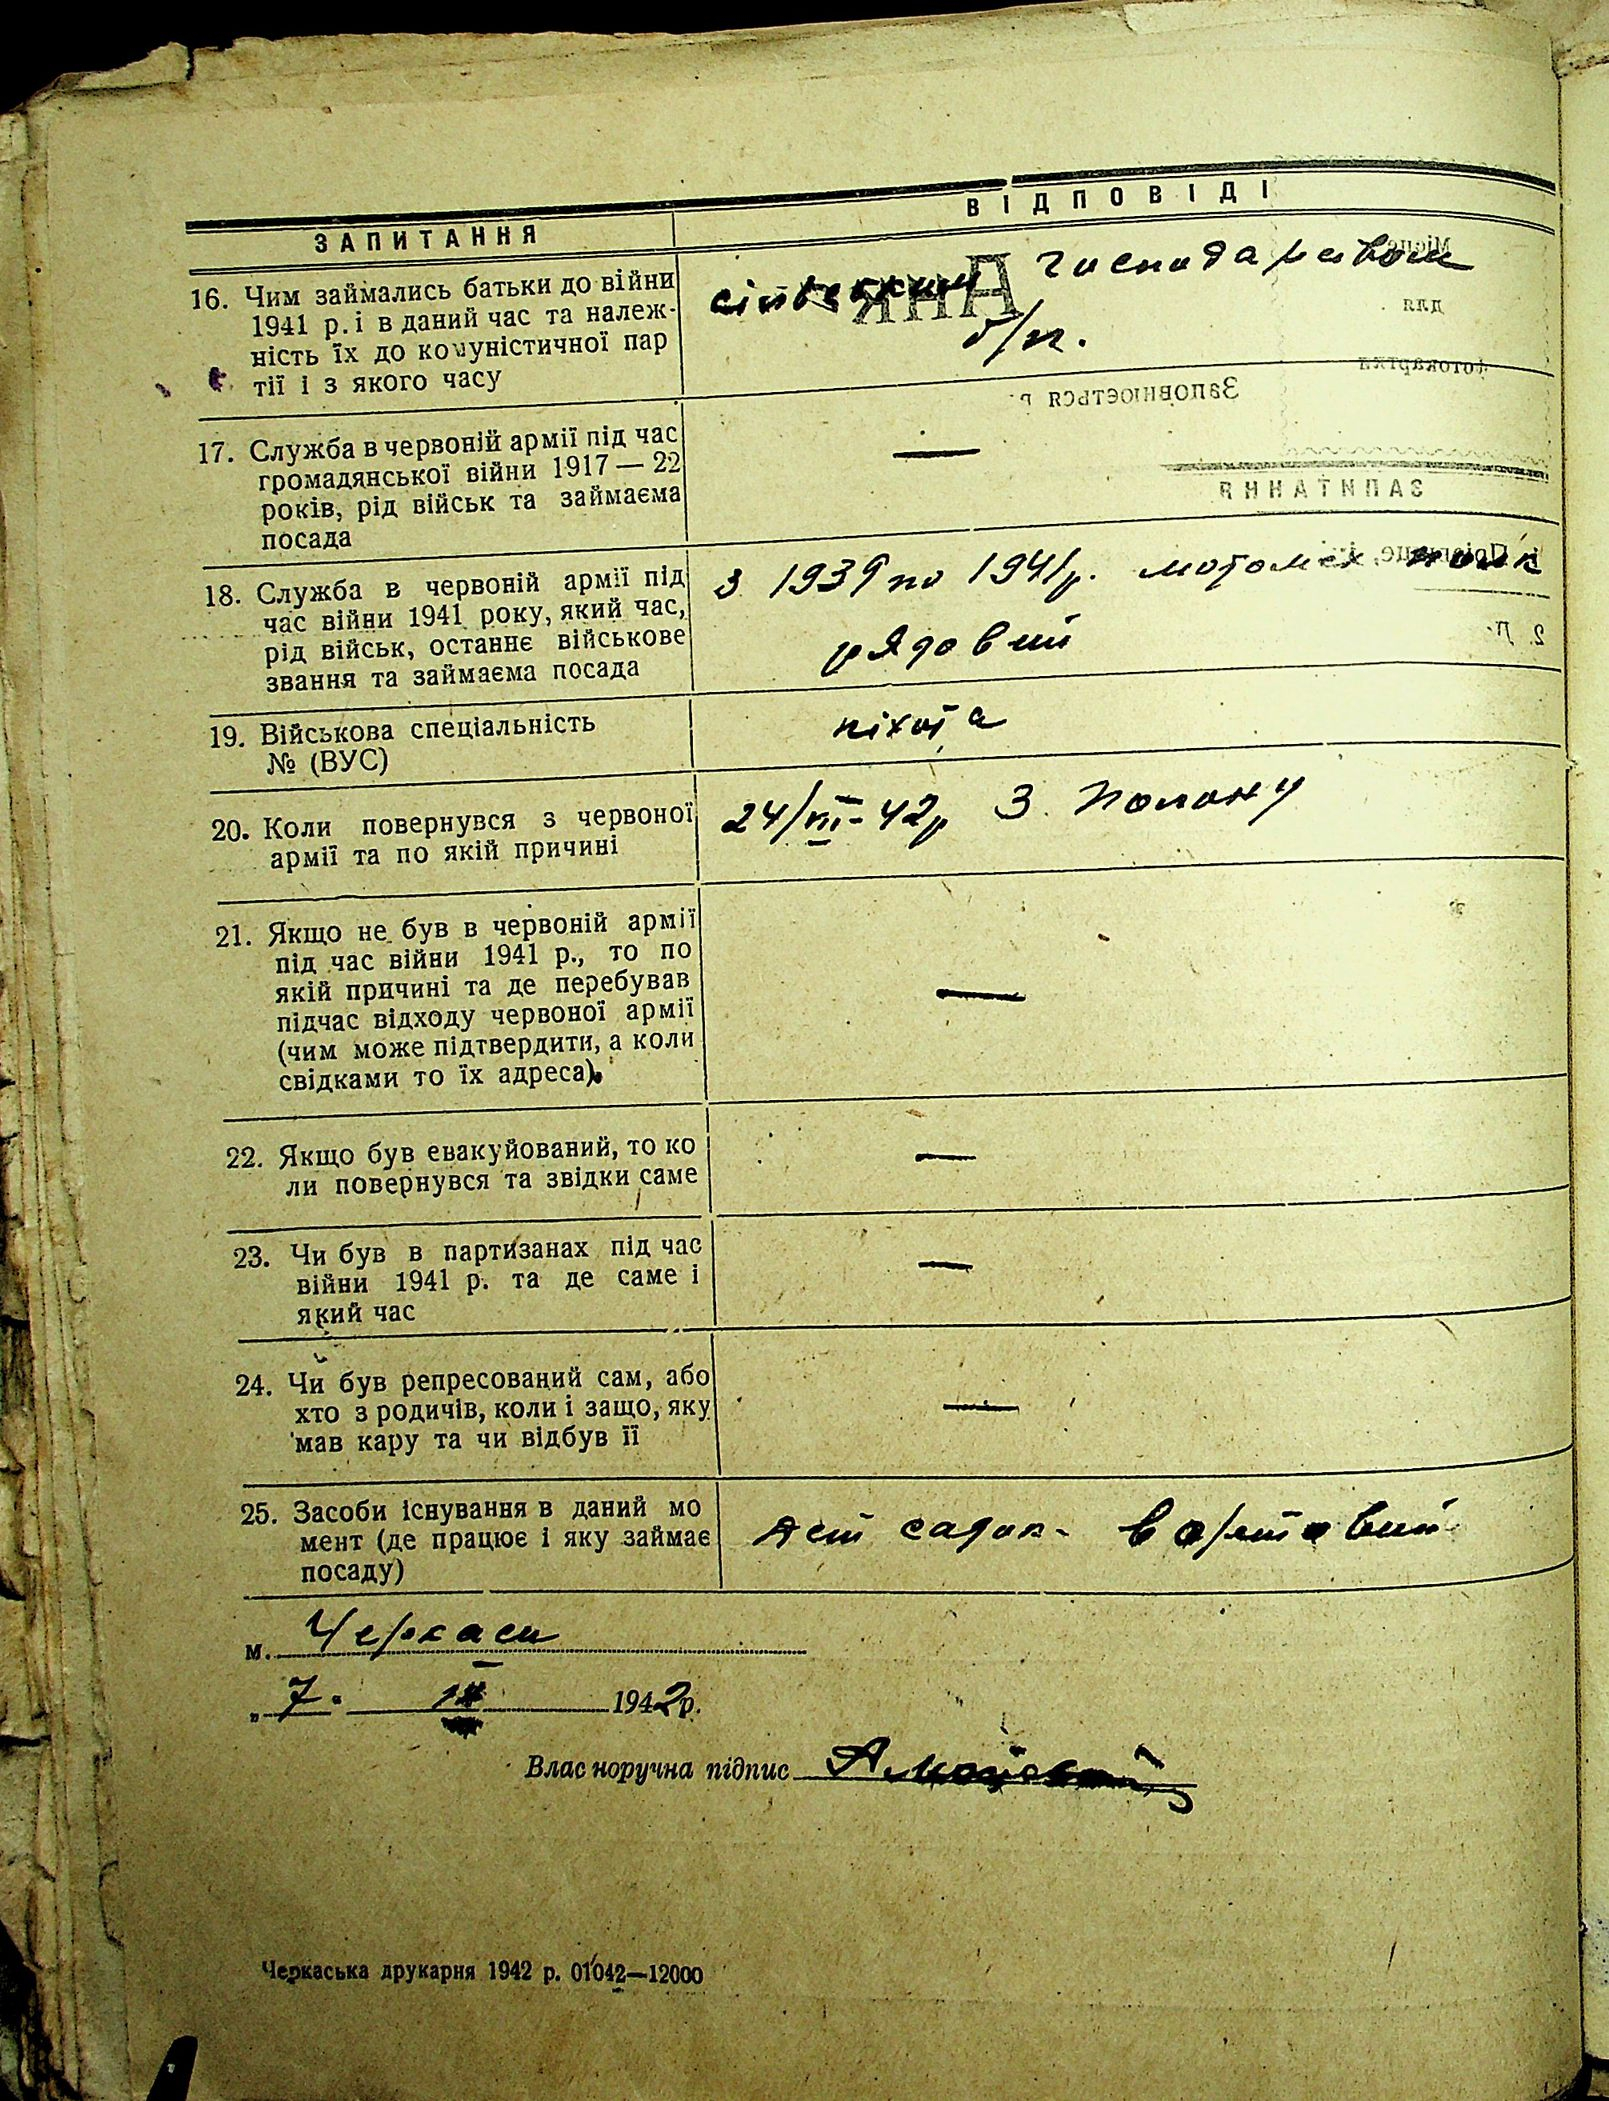 ЗАПИТАННЯ
ВІДПОВІДІ
16. Чим займались батьки до війни
1941 р. і в даний час та належ-
ність їх до комуністичної пар
тії і з якого часу
господарством
б/п.
17. Служба в червоній армії під час
громадянської війни 1917 — 22
років, рід військ та займаєма
посада
—
18. Служба в червоній армії під
час війни 1941 року, який час,
рід військ, останнє військове
звання та займаєма посада
З 1939 по 1941р. мотомех. полк
рядовий
19. Військова спеціальність
№ (ВУС)
піхота
20. Коли повернувся з червоної
армії та по якій причині
24/VIII-42р З. Полону
21. Якщо не був в червоній армії
під час війни 1941 р., то по
якій причині та де перебував
підчас відходу червоної армії
(чим може підтвердити, а коли
свідками то їх адреса).
—
22. Якщо був евакуйований, то ко
ли повернувся та звідки саме
—
23. Чи був в партизанах під час
війни 1941 р. та де саме і
який час
—
24. Чи був репресований сам, або
хто з родичів, коли і защо, яку
мав кару та чи відбув її
—
25. Засоби існування в даний мо
мент (де працює і яку займає
посаду)
садок - вартовий
м. Черкаси
„ 7 " 1942р.
Власноручна підпис
Черкаська друкарня 1942 р. 01042—12000